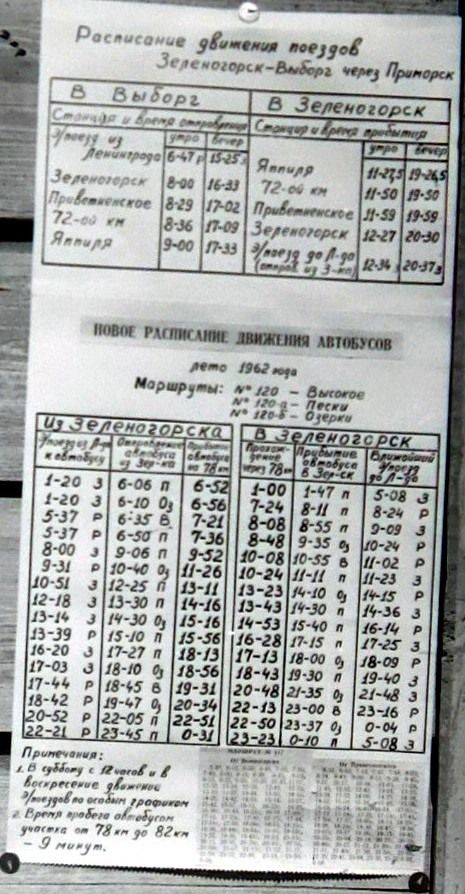 Расписание движения поездов
Зеленогорск-Выборг через Приморск
В Выборг
Станция и время отправления
Э/поезд из утро вечер
Ленинграда 6-47 р 15-25 з
Зеленогорск 8-00 16-33
Приветненское 8-29 17-02
72-ой км 8-36 17-09
Яппиля 9-00 17-33
В Зеленогорск
Станция и время прибытия
утро вечер
Яппиля 11-27,5 19-26,5
72-ой км 11-50 19-50
Приветненское 11-59 19-59
Зеленогорск 12-27 20-30
Э/поезд до Л-да
(отправ. из З-ка) 12-34 з 20-37 з
НОВОЕ РАСПИСАНИЕ ДВИЖЕНИЯ АВТОБУСОВ
лето 1962 года
Маршруты: № 120 – Высокое
№ 120-а – Пески
№ 120-б – Озерки
Из Зеленогорска
Э/поезд из Л-да Отправление Прибытие
к автобусу автобуса автобуса
из Зер-ка на 78 км
1-20 З 6-06 П 6-52
1-20 З 6-10 Оз 6-56
5-37 Р 6-35 В 7-21
5-37 Р 6-50 П 7-36
8-00 З 9-06 П 9-52
9-31 Р 10-40 Оз 11-26
10-51 З 12-25 П 13-11
12-18 З 13-30 П 14-16
13-14 З 14-30 Оз 15-16
13-39 Р 15-10 П 15-56
16-20 З 17-27 П 18-13
17-03 З 18-10 Оз 18-56
17-44 Р 18-45 В 19-31
18-42 Р 19-47 Оз 20-34
20-52 Р 22-05 П 22-51
22-21 Р 23-45 П 0-31
В Зеленогорск
Прохож- Прибытие Ближайший
дение автобуса Э/поезд
через 78км в Зер-ск до Л-да
1-00 1-47 П 5-08 З
7-24 8-11 П 8-24 Р
8-08 8-55 П 9-09 З
8-48 9-35 Оз 10-24 Р
10-08 10-55 В 11-02 Р
10-24 11-11 П 11-23 З
13-23 14-10 Оз 14-15 Р
13-43 14-30 П 14-36 З
14-53 15-40 П 16-14 Р
16-28 17-15 П 17-25 З
17-13 18-00 Оз 18-09 Р
18-43 19-30 П 19-40 З
20-48 21-35 Оз 21-48 З
22-13 23-00 В 23-16 Р
22-50 23-37 Оз 0-04 Р
23-23 0-10 П 5-08 З
Примечания:
1. В субботу с 12 часов и в
воскресение движение
Э/поездов по особым графикам
2. Время пробега автобусом
участка от 78 км до 82 км
– 9 минут.